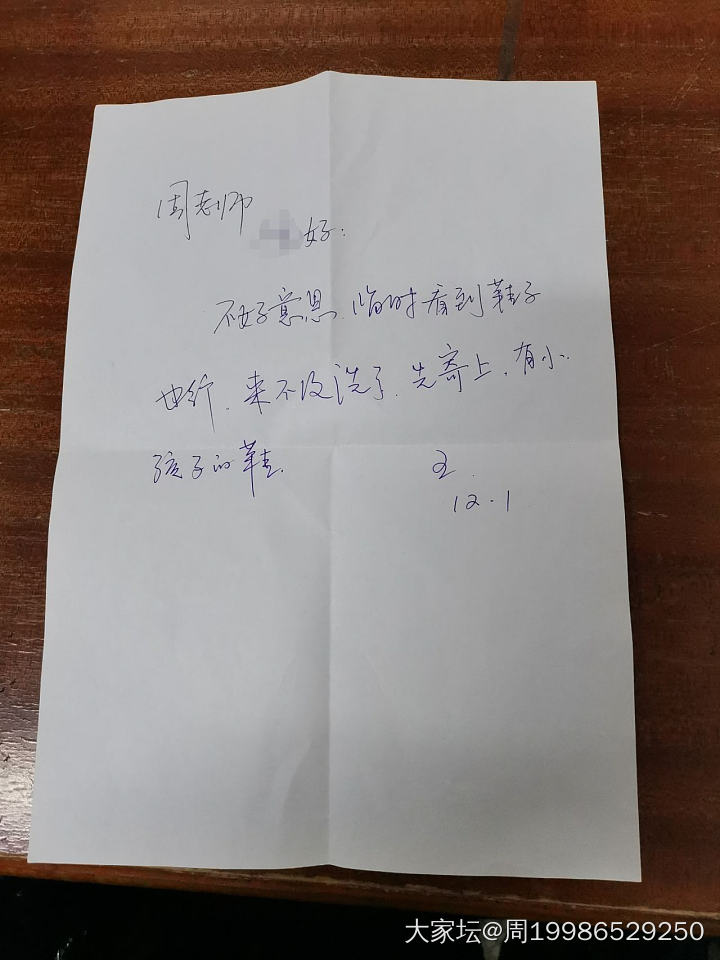 周老师
好:
不好意思.临时看到鞋子
也行.来不及洗了.先寄上.有小
孩子的鞋.
王.
12.1
大家坛@周19986529250